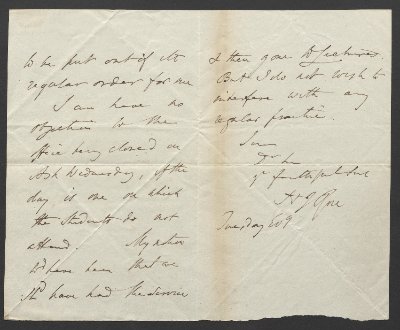 to be put out of its
regular order for me
I can have no
objection to the
office being closed on
Ash Wednesday, if the
day is one on which
the Students do not
attend. My notion
wd have been that we
shd have had the service
& then gone to lectures.
But I do not wish to
interfere with any
regular practice.
I am
Dr Sir
yr faithful Sert
H J Rose
Tuesday